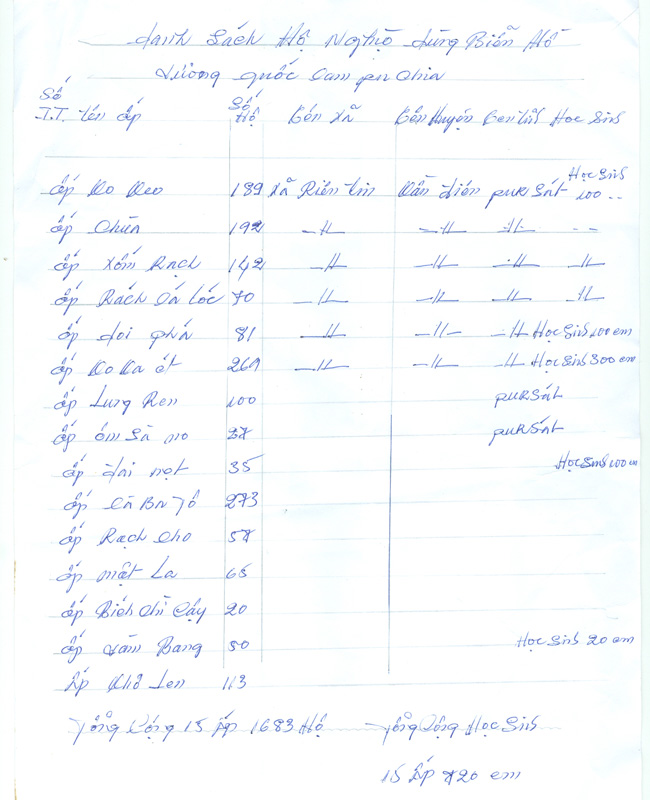 Danh Sách Hộ Nghèo Vùng Biển Hồ
Vương quốc Cam pu Chia
Số T.T. Tên ấp Số Hộ Bên Xã Bên Huyện Bên tỉnh Học Sinh
ấp Ko Keo 189 Xã Riên tin pur sát Học Sinh 100
ấp Chùa 192 -//- -//- -//- - -
ấp Xóm Rạch 142 -//- -//- -//- -//-
ấp Rách Cá Lóc 70 -//- -//- -//- -//-
ấp 81 -//- -//- -//- Học Sinh 100 em
ấp Ko Ka ét 269 -//- -//- -//- Học Sinh 300 em
ấp Lung Ren 100 pur Sát
ấp 37 pur Sát
ấp 35 Học Sinh 100 em
ấp 273
ấp Rạch Cho 57
ấp mặt La 65
ấp 20
ấp Bang 50 Học Sinh 20 em
Ấp Khô Len 113
Tổng Cộng 15 Ấp 1683 Hộ Tổng Cộng Học Sinh
15 Ấp 720 em